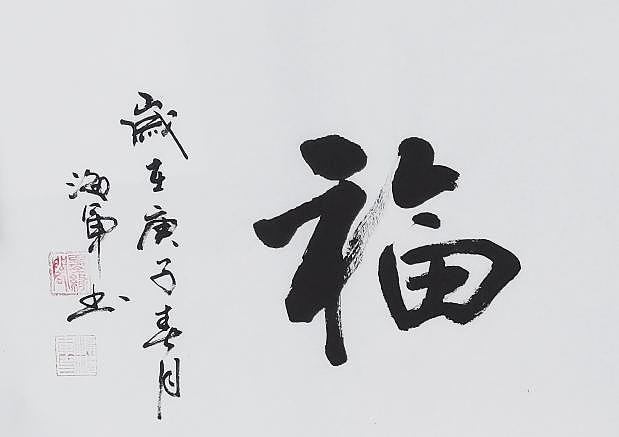 福
歲在庚子春月
海軍书